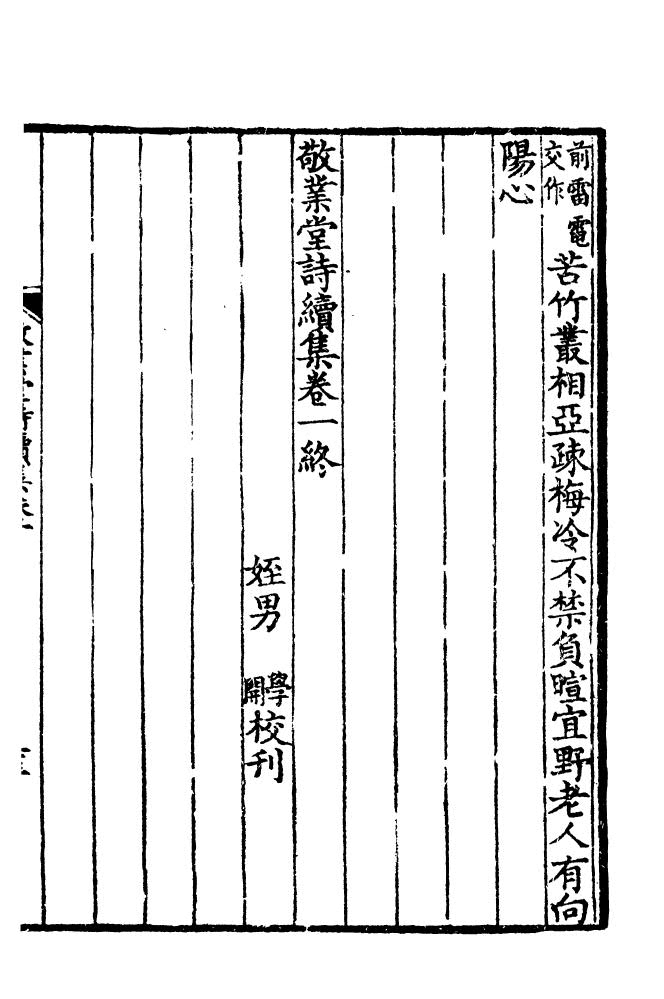 前雷電交作苦竹叢相亞疎梅冷不禁負暄宜野老人有向
陽心
敬業堂詩續集卷一終
姪男學開校刊